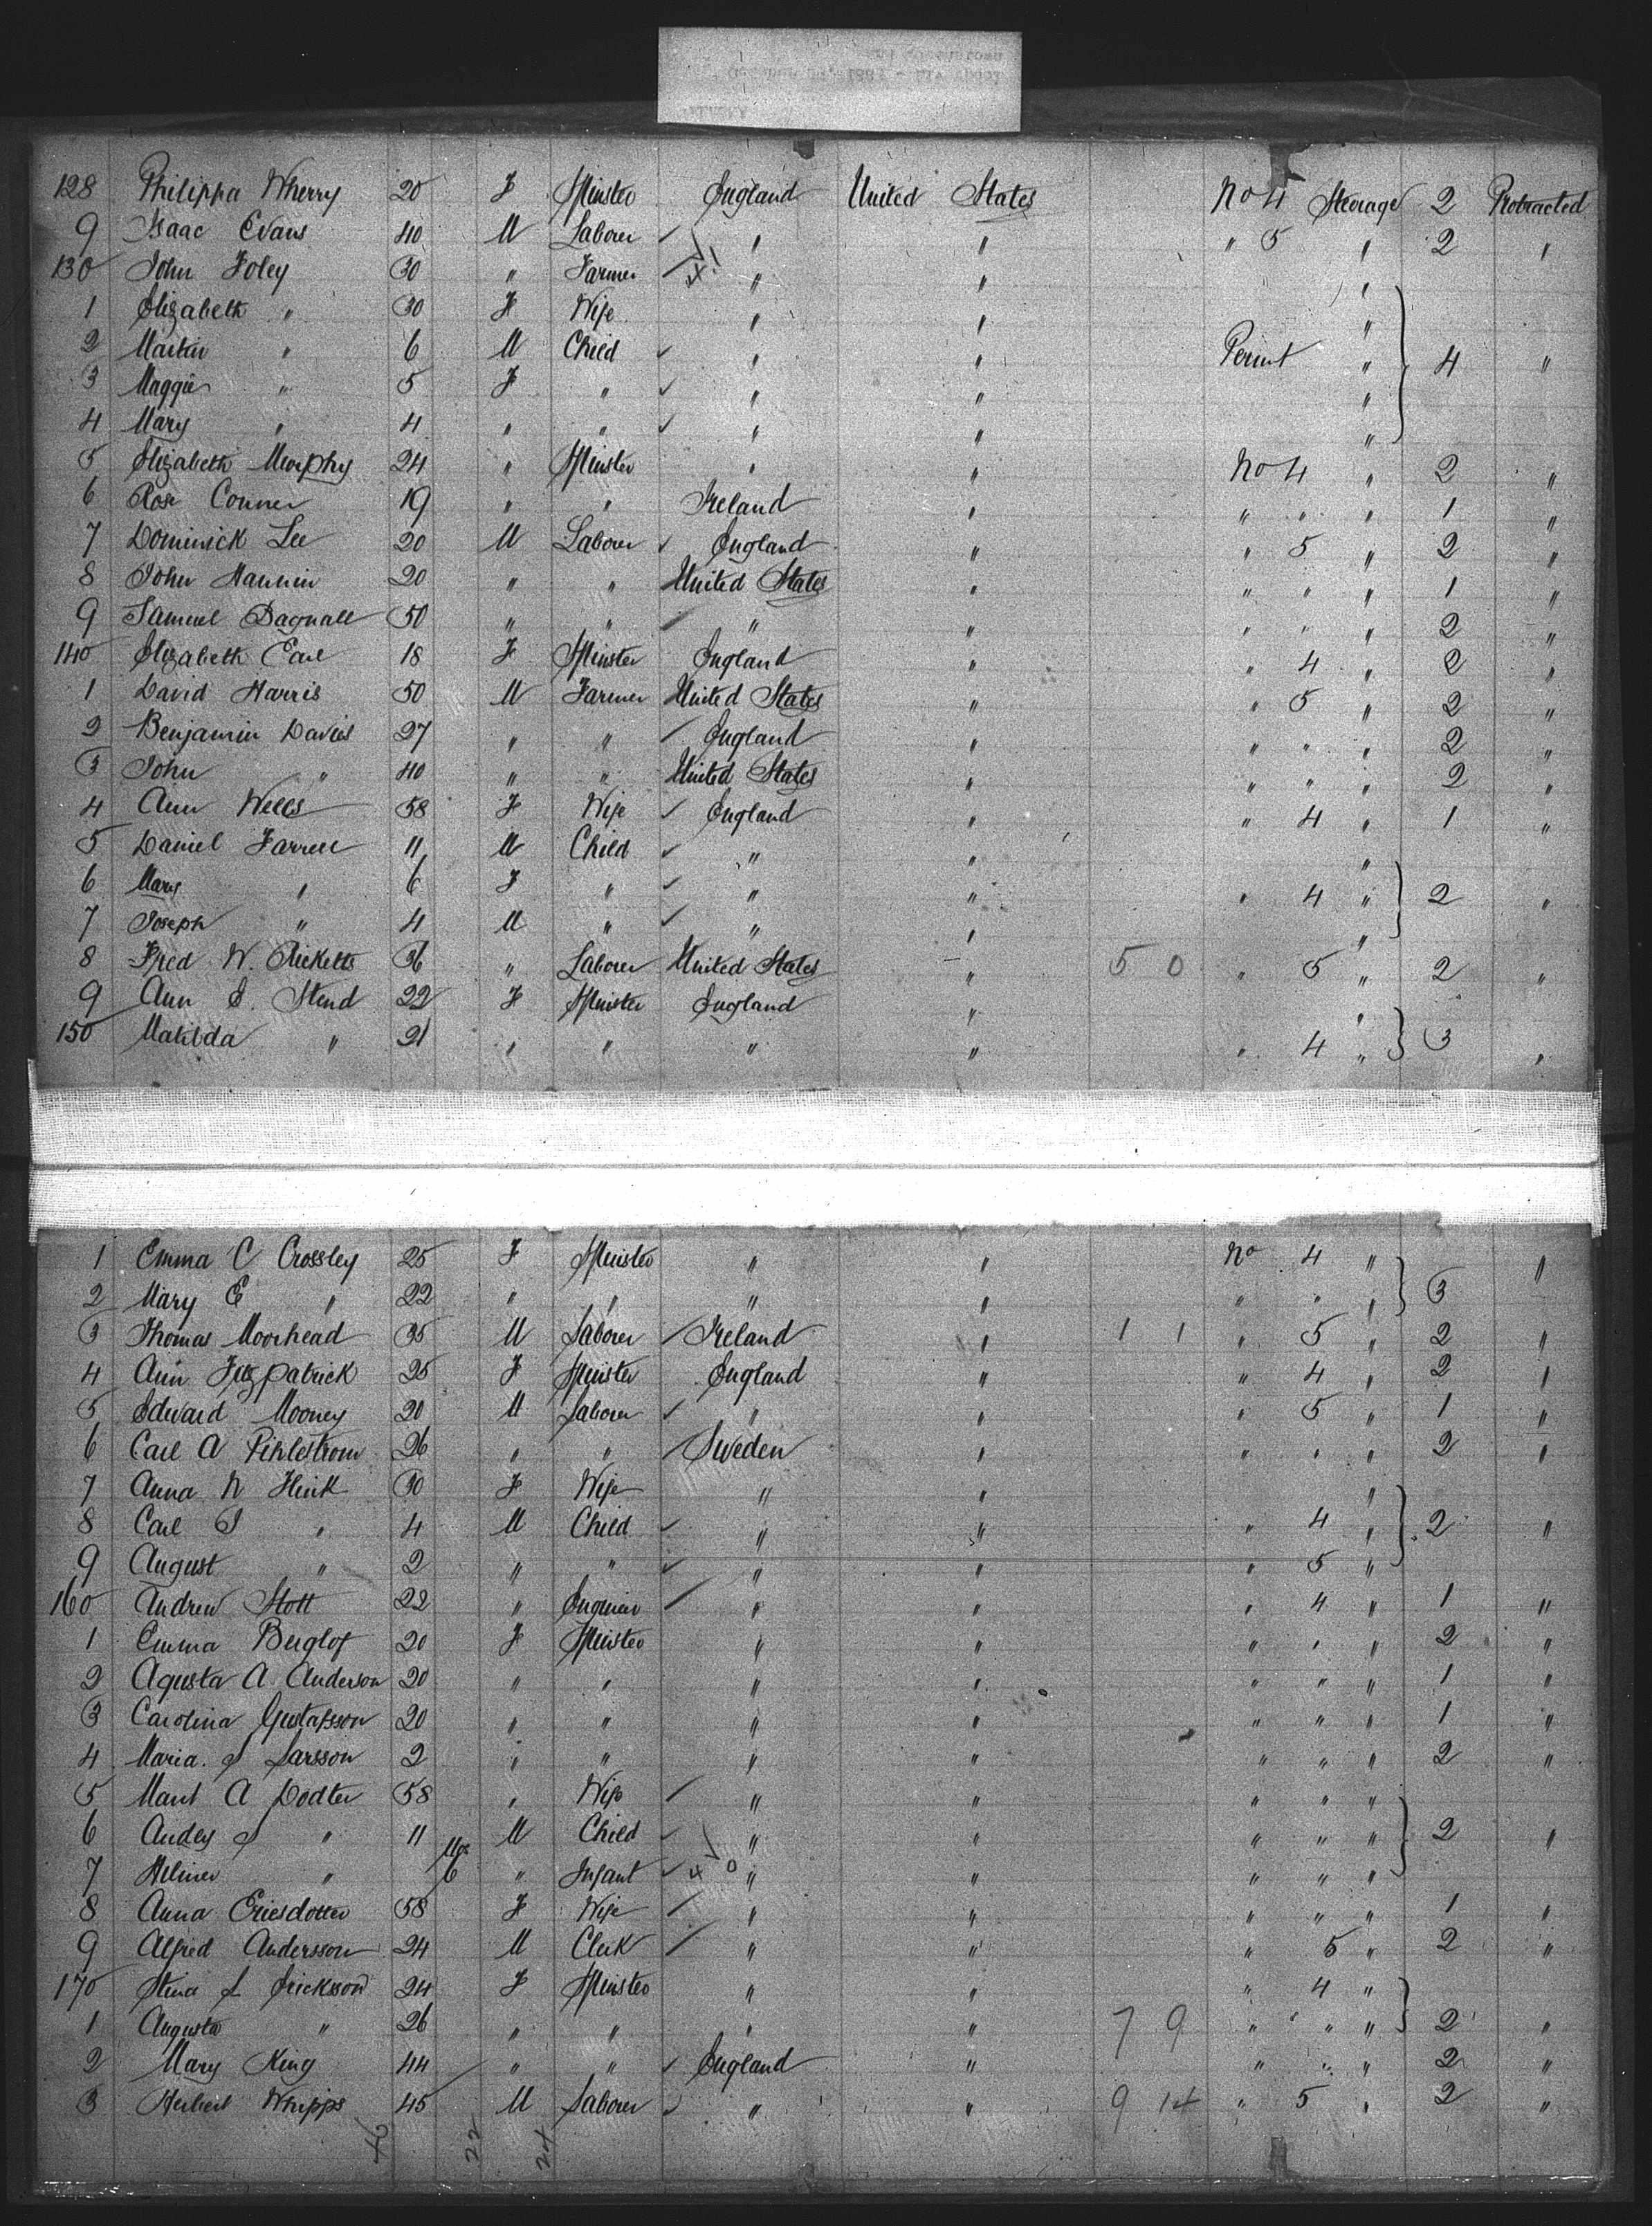 128 Philippa Wherry 20 F Spinster England United States No 4 Steerage 2 Protracted
9 Isaac Evans 40 M Laborer " " " 5 " 2 "
130 John Foley 30 " Farmer " " "
1 Elizabeth " 30 F Wife " " "
2 Martin " 6 M Child " " " 4 "
3 Maggie " 5 F " " " "
4 Mary " 4 " " " " "
5 Elizabeth Murphy 24 " Spinster " " No 4 " 2 "
6 Rose Conner 19 " " Ireland " " " " 1 "
7 Dominick Lee 20 M Laborer England " " 5 " 2 "
8 John Mannin 20 " " United States " " " " 1 "
9 Samuel Dagnall 50 " " " " " " " 2 "
140 Elizabeth Earl 18 F Spinster England " " 4 " 2 "
1 David Harris 50 M Farmer United States " " 5 " 2 "
2 Benjamin Davies 27 " " England " " " " 2 "
3 John " 40 " " United States " " " " 2 "
4 Ann Wells 58 F Wife England " " 4 " 1 "
5 Daniel Farrell 11 M Child " " "
6 Mary " 6 F " " " " 4 " 2 "
7 Joseph " 4 M " " " "
8 Fred W. Ricketts 36 " Laborer United States " 5 0 " 5 " 2 "
9 Ann E. Stend 22 F Spinster England " "
150 Matilda " 21 " " " " " 4 " 3 "
1 Emma C Crossley 25 F Spinster " " No 4 " "
2 Mary E " 22 " " " " " " " 3
3 Thomas Moorhead 35 M Laborer Ireland " 1 1 " 5 " 2 "
4 Ann Fitzpatrick 25 F Spinster England " " 4 " 2 "
5 Edward Mooney 20 M Laborer " " " 5 " 1 "
6 Carl A Pihlstrom 26 " " Sweden " " " " 2 "
7 Anna N Flink 30 F Wife " " "
8 Carl " 4 M Child " " " 4 " 2 "
9 August " 2 " " " " " 5 "
160 Andrew Stott 22 " Engineer " " " 4 " 1 "
1 Emma Berglof 20 F Spinster " " " " " 2 "
2 Agusta A Anderson 20 " " " " " " " 1 "
3 Carolina Gustafsson 20 " " " " " " " 1 "
4 Maria. S Larsson 2 " " " " " " " 2 "
5 A Dodter 58 " Wife " " " " "
6 " 11 M Child " " " " " 2 "
7 Hilmer " Mos 6 " Infant " " " " "
8 Anna Ericsdotter 58 F Wife " " " " " 1 "
9 Alfred Andersson 24 M Clerk " " " 5 " 2 "
170 Stina L Erickson 24 F Spinster " " " 4 "
1 Augusta " 26 " " " " 7 9 " " " 2 "
2 Mary King 44 " " England " " " " 2 "
3 Herbert Whipps 45 M Laborer " " 9 14 " 5 " 2 "
46 22 24